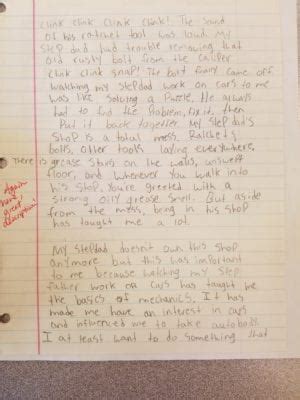 clink clink clink clink! The sound
of his ratchet tool was loud. My
step dad had trouble removing that
old rusty bolt from the caliper
clink clink snap! The bolt finally came off.
Watching my stepdad work on cars to me
was like solving a Puzzle. He always
had to find the Problem, fix it, then
Put it back together. My step dad's
shop is a total mess. Ratchets,
bolts, other tools laying everywhere,
There is grease stains on the walls, unswept
floor, and whenever you walk into
his shop. You're greeted with a
strong oily grease smell. But aside
from the mess, being in his shop
has taught me a lot.
Again
here,
great
description!
My stepdad doesn't own this shop
anymore but this was important
to me because watching my step
father work on cars has taught me
the basics of mechanics. It has
made me have an interest in cars
and influenced me to take autobody.
I at least want to do something that